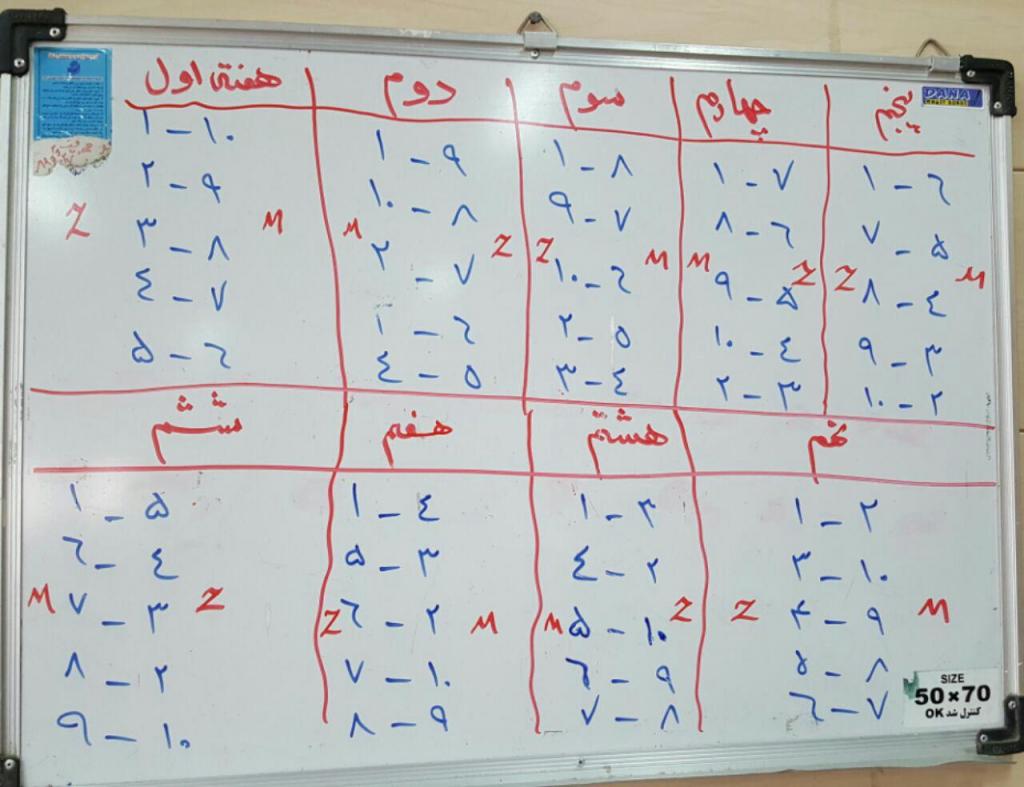 هفته اول
۱ - ۱۰
۲ - ۹
۳ - ۸
Z M
۴ - ۷
۵ - ۶
دوم
۱ - ۹
۱۰ - ۸
M ۲ - ۷ Z
۱ - ۶
۴ - ۵
سوم
۱ - ۸
۹ - ۷
Z ۱۰ - ۶ M
۲ - ۵
۳ - ۴
چهارم
۱ - ۷
۸ - ۶
M ۹ - ۵ Z
۱۰ - ۴
۲ - ۳
پنجم
۱ - ۶
۷ - ۵
Z ۸ - ۴ M
۹ - ۳
۱۰ - ۲
ششم
۱ - ۵
۶ - ۴
M ۷ - ۳ Z
۸ - ۲
۹ - ۱۰
هفتم
۱ - ۴
۵ - ۳
Z ۶ - ۲ M
۷ - ۱۰
۸ - ۹
هشتم
۱ - ۳
۴ - ۲
M ۵ - ۱۰ Z
۶ - ۹
۷ - ۸
نهم
۱ - ۲
۳ - ۱۰
Z ۴ - ۹ M
۵ - ۸
۶ - ۷
DANA
SIZE
50×70
کنترل شد OK